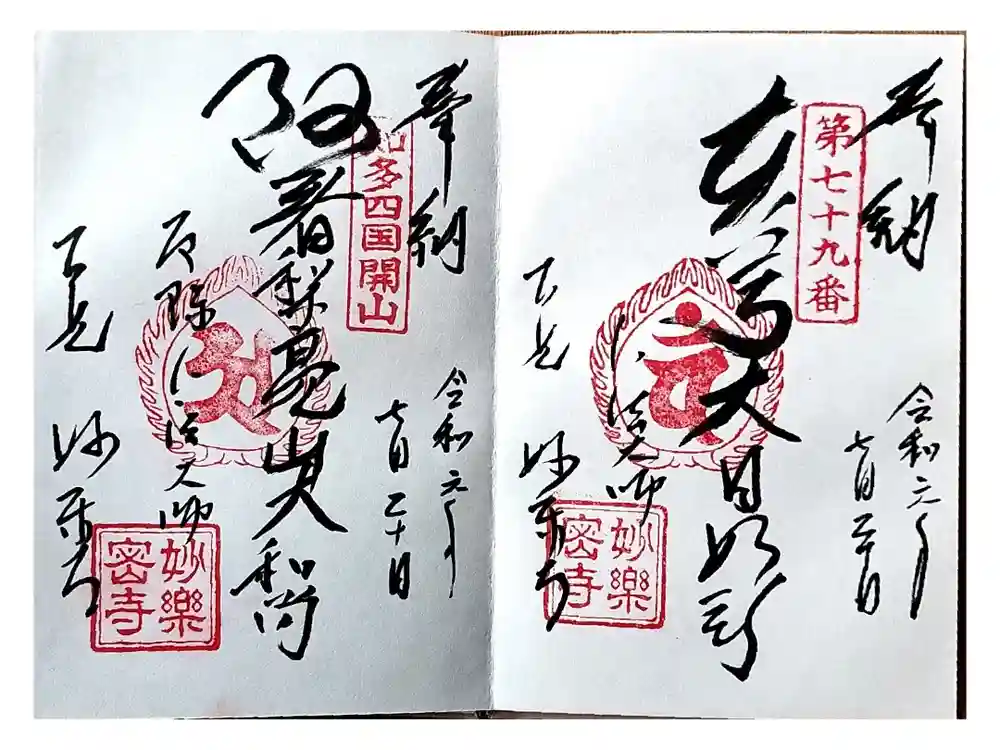 奉納
第七十九番
令和元年
七月二十日
本尊大日如来
弘法大師
古見 妙楽寺
妙樂
密寺
奉納
知多四国開山
令和元年
七月二十日
阿闍梨亮山大和尚
厄除弘法大師
古見 妙楽寺
妙樂
密寺